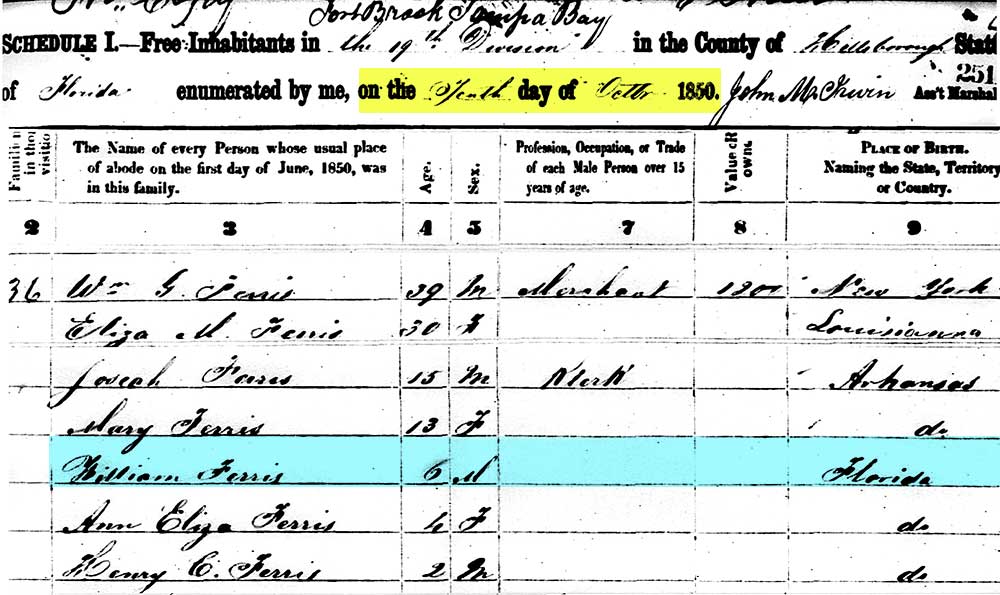 Fort Brook Tampa Bay
SCHEDULE I.—Free Inhabitants in the 19th Division in the County of Hillsborough State
of Florida enumerated by me, on the Tenth day of Octbr 1850. John McIrwin Ass't Marshal
251
Families in the visitation
The Name of every Person whose usual place of abode on the first day of June, 1850, was in this family.
Age.
Sex.
Profession, Occupation, or Trade of each Male Person over 15 years of age.
Value of R owne
PLACE OF BIRTH. Naming the State, Territory or Country.
2 3 4 5 7 8 9
36 Wm G. Ferris 39 M Merchant 1200 New York
Eliza M. Ferris 30 F Louisianna
Joseah Ferris 15 M Klerk Arkansas
Mary Ferris 13 F do
William Ferris 6 M Florida
Ann Eliza Ferris 4 F do
Henry C. Ferris 2 M do